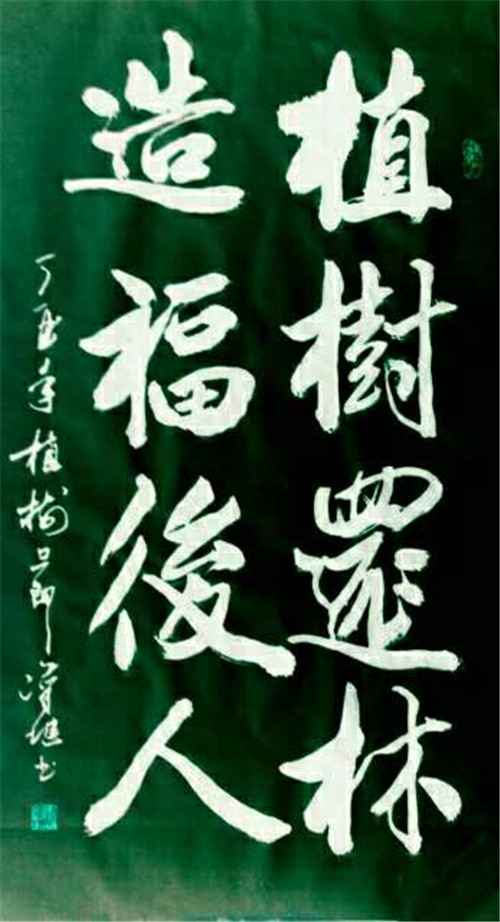 植樹還林
造福後人
丁酉年植樹節